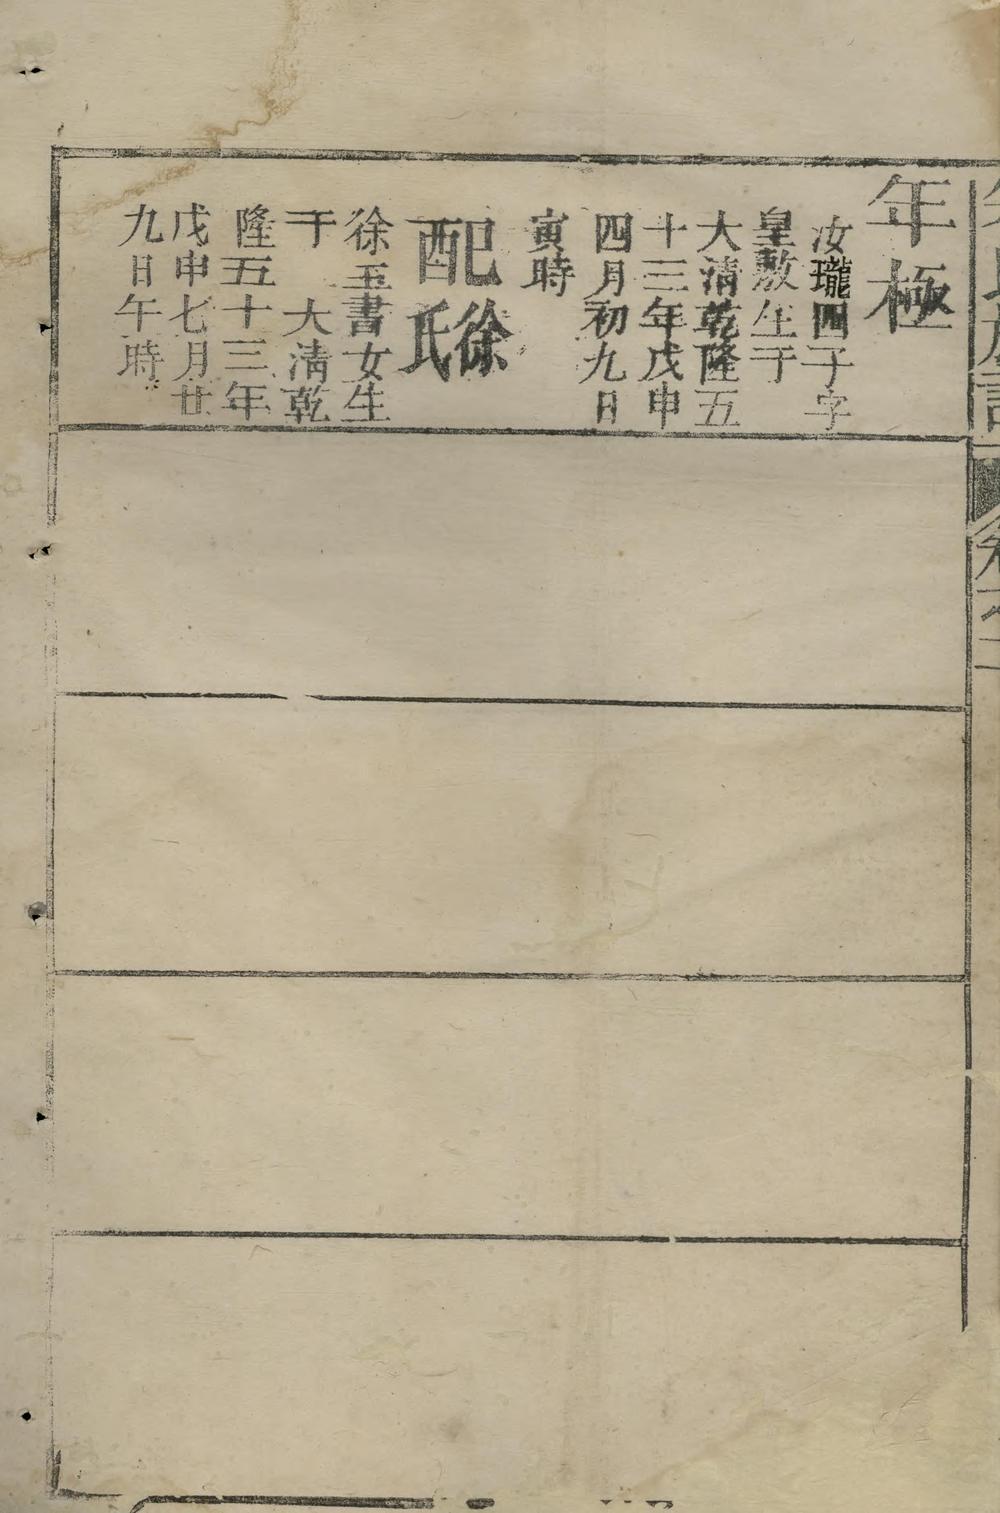 年極
汝瓏四子字
皇敷生于
大淸乾隆五
十三年戊申
四月初九日
寅時
配徐氏
徐玉書女生
于 大淸乾
隆五十三年
戊申七月廿
九日午時